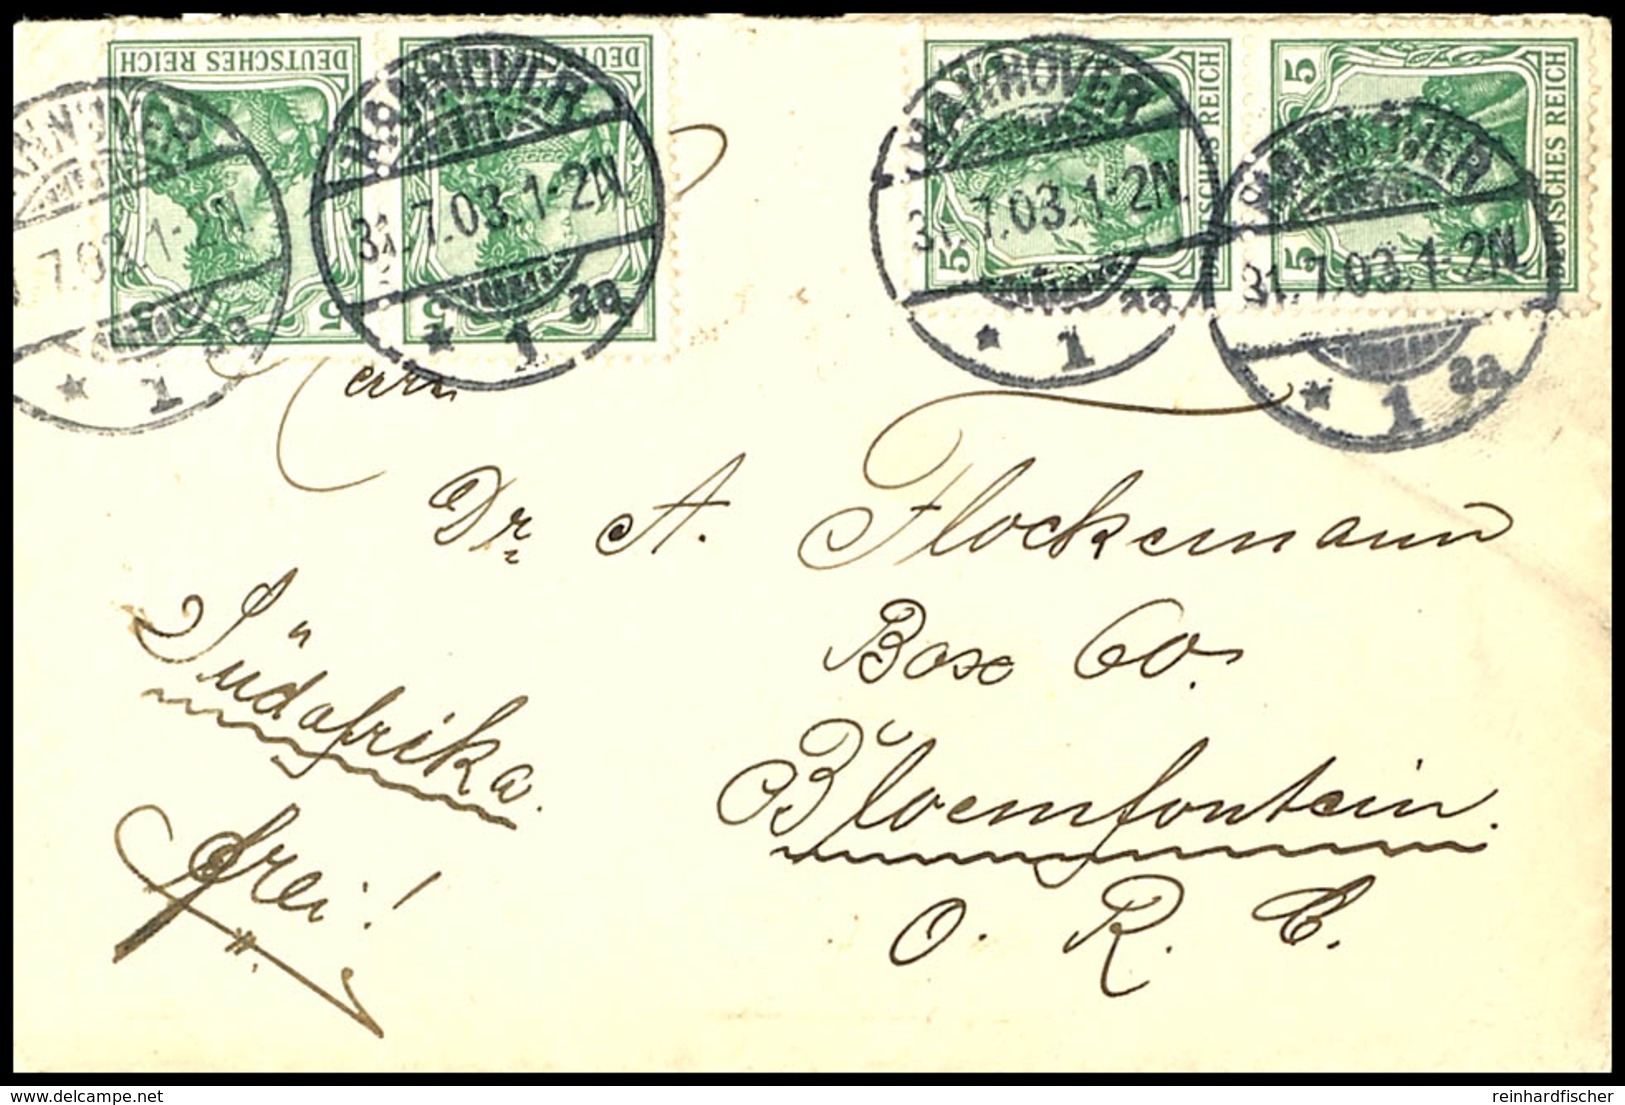 DEUTSCHES REICH
DEUTSCHES REICH
DEUTSCHES REICH
DEUTSCHES REICH
5 5
5
5 5
5 5
HANNOVER
31.7.03.1-2N.
* 1 aa
HANNOVER
31.7.03.1-2N.
* 1 aa
HANNOVER
31.7.03.1-2N.
* 1 aa
HANNOVER
31.7.03.1-2N.
* 1 aa
Herrn
Dr. A. Flockemann
Box 60.
Bloemfontein.
O. R. C.
Südafrika.
frei!
delcampe.net
reinhardfischer